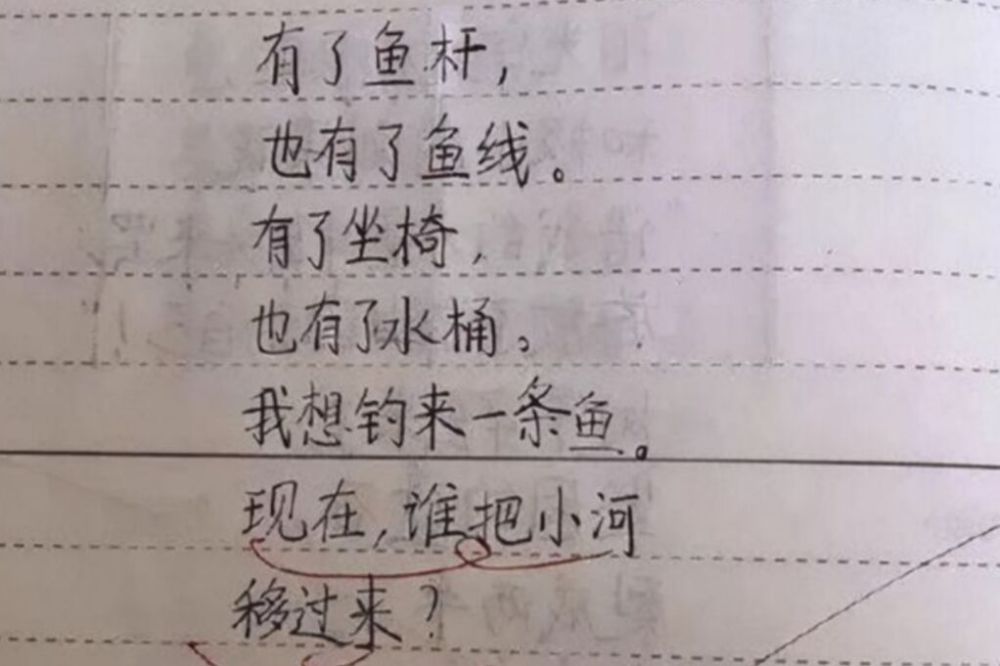 有了鱼杆，
也有了鱼线。
有了坐椅，
也有了水桶。
我想钓来一条鱼。
现在，谁把小河
移过来？